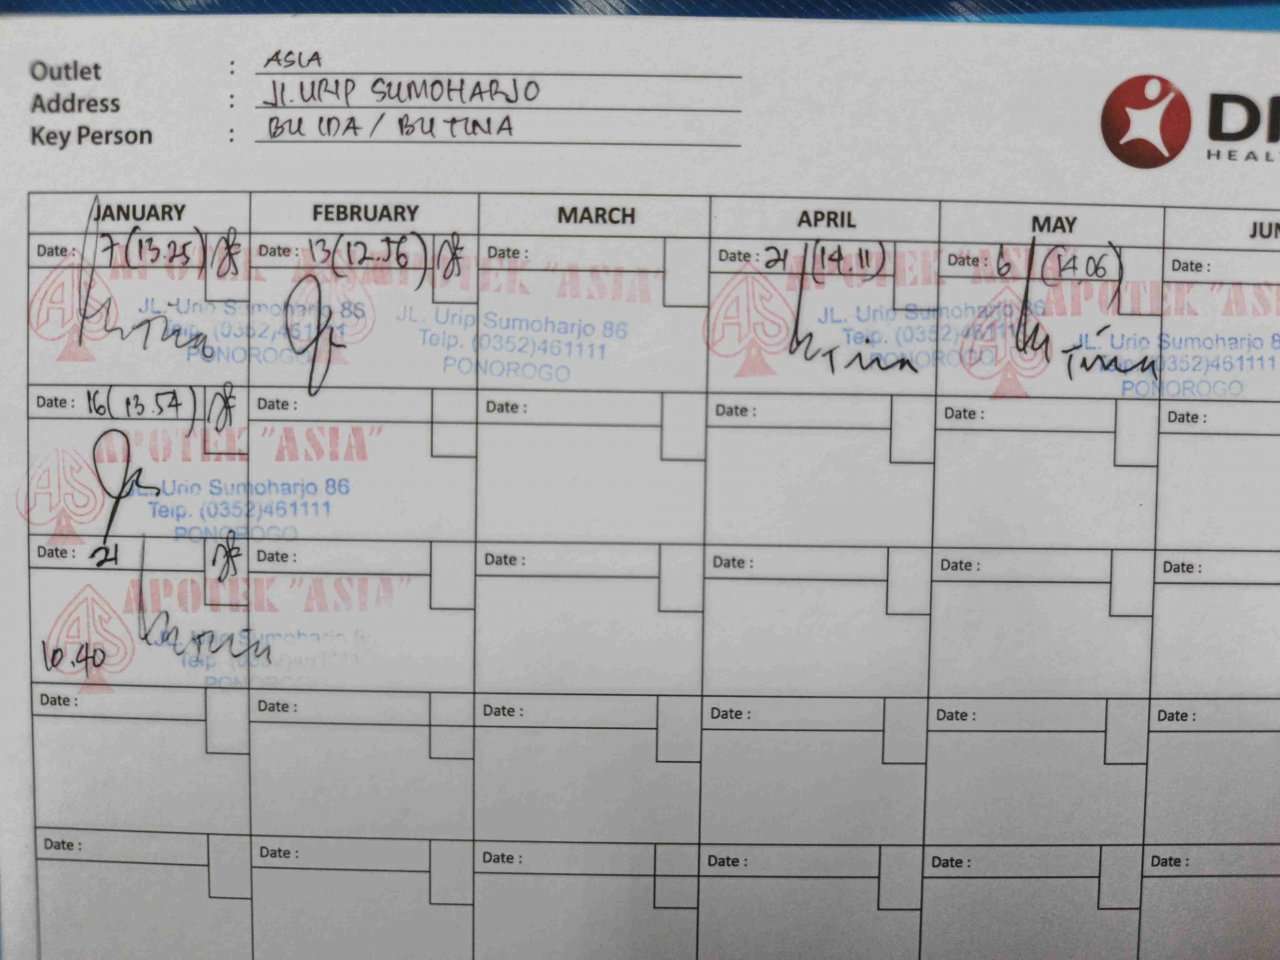 Outlet : ASIA
Address : Jl. URIP SUMOHARJO
Key Person : BU IDA / BU TINA
HEAL
JANUARY FEBRUARY MARCH APRIL MAY JUN
Date : 7 (13.25) Date : 13 (12.56) Date : Date : 21 (14.11) Date : 6 (14.06) Date :
APOTEK "ASIA"
JL. Urip Sumoharjo 86
Telp. (0352)461111
PONOROGO
JL. Urip Sumoharjo 86
Telp. (0352)461111
PONOROGO
APOTEK
JL. Urip Sumoharjo 86
Telp. (0352)
Tina
APOTEK "AS
JL. Urip Sumoharjo 8
(0352)461111
PONOROGO
Tina
Date : 16 (13.54) Date : Date : Date : Date : Date :
APOTEK "ASIA"
JL. Urip Sumoharjo 86
Telp. (0352)461111
PONOROGO
Date : 21 Date : Date : Date : Date : Date :
APOTEK "ASIA"
10.40
Date : Date : Date : Date : Date : Date :
Date : Date : Date : Date : Date : Date :